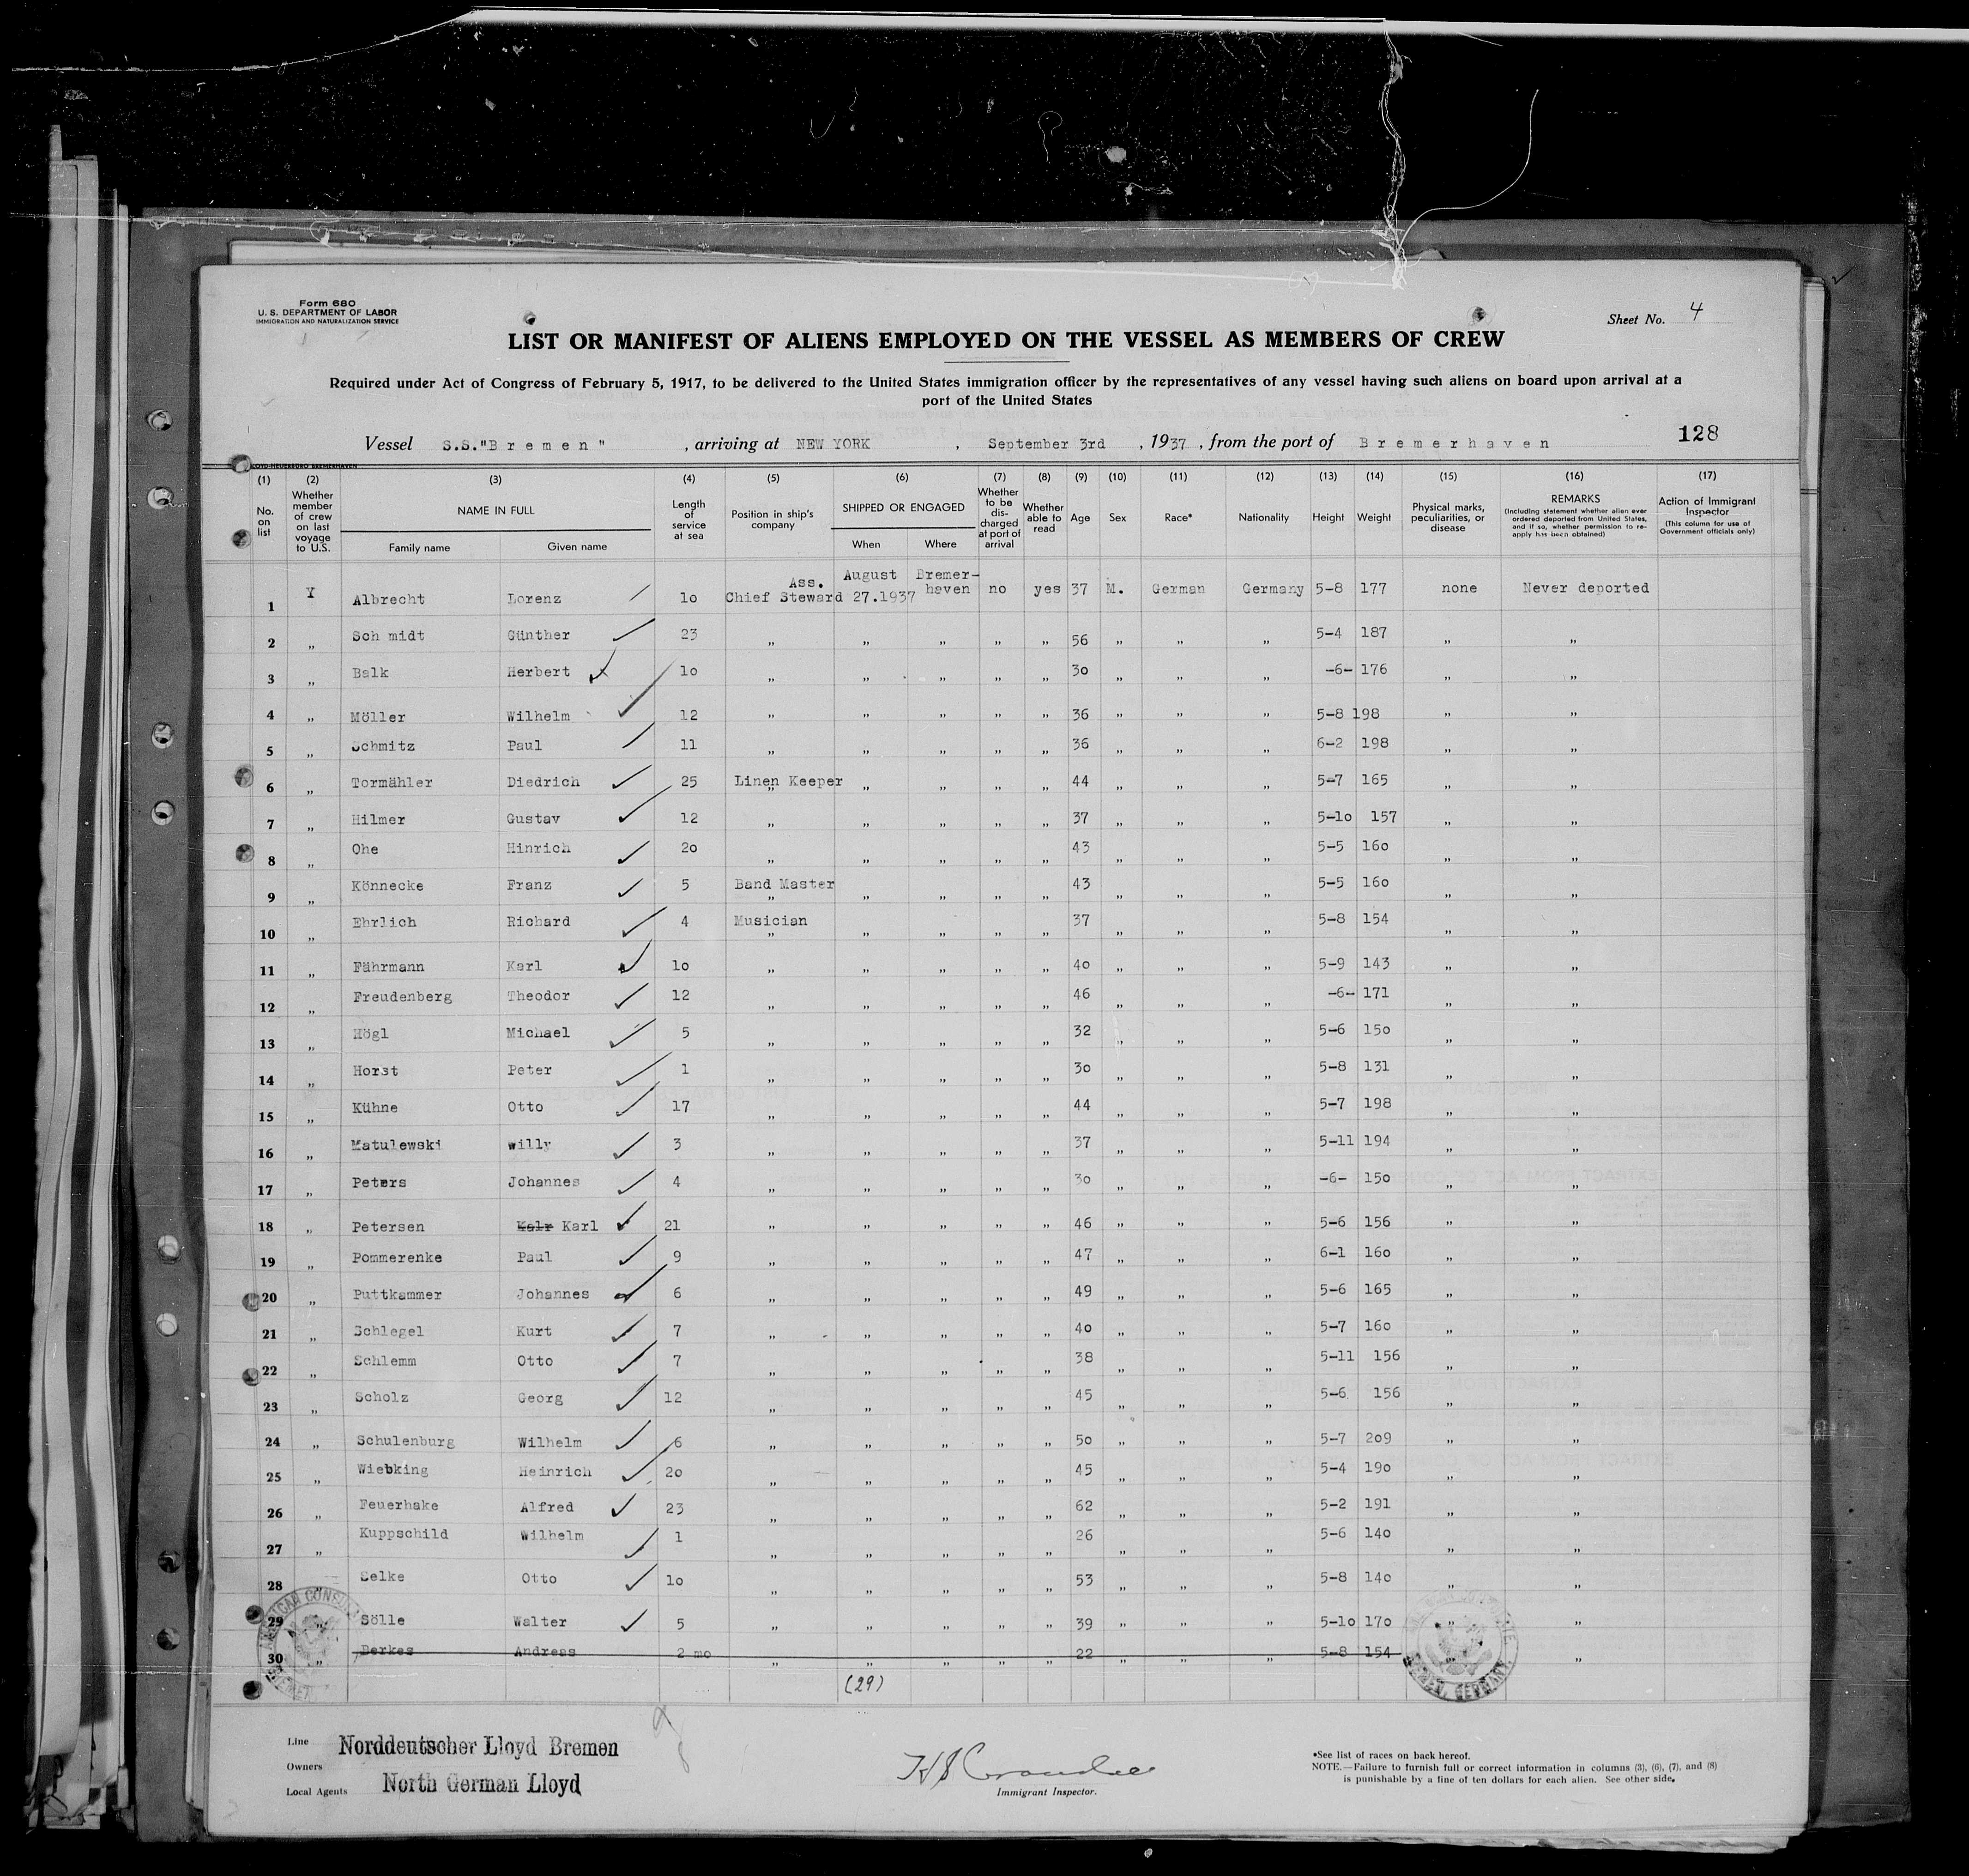 Form 680
U. S. DEPARTMENT OF LABOR
IMMIGRATION AND NATURALIZATION SERVICE
Sheet No. 4
LIST OR MANIFEST OF ALIENS EMPLOYED ON THE VESSEL AS MEMBERS OF CREW
Required under Act of Congress of February 5, 1917, to be delivered to the United States immigration officer by the representatives of any vessel having such aliens on board upon arrival at a
port of the United States
Vessel S.S."Bremen" , arriving at NEW YORK , September 3rd , 1937 , from the port of Bremerhaven 128
(1) (2) (3) (4) (5) (6) (7) (8) (9) (10) (11) (12) (13) (14) (15) (16) (17)
No. on list
Whether member of crew on last voyage to U.S.
NAME IN FULL
Family name Given name
Length of service at sea
Position in ship's company
SHIPPED OR ENGAGED
When Where
Whether to be dis-charged at port of arrival
Whether able to read
Age
Sex
Race*
Nationality
Height
Weight
Physical marks, peculiarities, or disease
REMARKS
(Including statement whether alien ever ordered deported from United States, and if so, whether permission to re-apply has been obtained)
Action of Immigrant Inspector
(This column for use of Government officials only)
1 Y Albrecht Lorenz 10 Ass. Chief Steward August 27.1937 Bremer-haven no yes 37 M. German Germany 5-8 177 none Never deported
2 „ Sch midt Günther 23 „ „ „ „ „ 56 „ „ „ 5-4 187 „ „
3 „ Balk Herbert 10 „ „ „ „ „ 30 „ „ „ -6- 176 „ „
4 „ Möller Wilhelm 12 „ „ „ „ „ 36 „ „ „ 5-8 198 „ „
5 „ Schmitz Paul 11 „ „ „ „ „ 36 „ „ „ 6-2 198 „ „
6 „ Tormähler Diedrich 25 Linen Keeper „ „ „ „ 44 „ „ „ 5-7 165 „ „
7 „ Hilmer Gustav 12 „ „ „ „ „ 37 „ „ „ 5-10 157 „ „
8 „ Ohe Hinrich 20 „ „ „ „ „ 43 „ „ „ 5-5 160 „ „
9 „ Könnecke Franz 5 Band Master „ „ „ „ 43 „ „ „ 5-5 160 „ „
10 „ Ehrlich Richard 4 Musician „ „ „ „ 37 „ „ „ 5-8 154 „ „
11 „ Fährmann Karl 10 „ „ „ „ „ 40 „ „ „ 5-9 143 „ „
12 „ Freudenberg Theodor 12 „ „ „ „ „ 46 „ „ „ -6- 171 „ „
13 „ Högl Michael 5 „ „ „ „ „ 32 „ „ „ 5-6 150 „ „
14 „ Horst Peter 1 „ „ „ „ „ 30 „ „ „ 5-8 131 „ „
15 „ Kühne Otto 17 „ „ „ „ „ 44 „ „ „ 5-7 198 „ „
16 „ Matulewski willy 3 „ „ „ „ „ 37 „ „ „ 5-11 194 „ „
17 „ Peters Johannes 4 „ „ „ „ „ 30 „ „ „ -6- 150 „ „
18 „ Petersen Kalr Karl 21 „ „ „ „ „ 46 „ „ „ 5-6 156 „ „
19 „ Pommerenke Paul 9 „ „ „ „ „ 47 „ „ „ 6-1 160 „ „
20 „ Puttkammer Johannes 6 „ „ „ „ „ 49 „ „ „ 5-6 165 „ „
21 „ Schlegel Kurt 7 „ „ „ „ „ 40 „ „ „ 5-7 160 „ „
22 „ Schlemm Otto 7 „ „ „ „ „ 38 „ „ „ 5-11 156 „ „
23 „ Scholz Georg 12 „ „ „ „ „ 45 „ „ „ 5-6 156 „ „
24 „ Schulenburg Wilhelm 6 „ „ „ „ „ 50 „ „ „ 5-7 209 „ „
25 „ Wiebking Heinrich 20 „ „ „ „ „ 45 „ „ „ 5-4 190 „ „
26 „ Feuerhake Alfred 23 „ „ „ „ „ 62 „ „ „ 5-2 191 „ „
27 „ Kuppschild Wilhelm 1 „ „ „ „ „ 26 „ „ „ 5-6 140 „ „
28 „ Selke Otto 10 „ „ „ „ „ 53 „ „ „ 5-8 140 „ „
29 „ Sölle Walter 5 „ „ „ „ „ 39 „ „ „ 5-10 170 „ „
30 „ Berkes Andreas 2 mo „ „ „ „ „ 22 „ „ „ 5-8 154 „ „
(29)
Line Norddeutscher Lloyd Bremen
Owners
Local Agents North German Lloyd
Immigrant Inspector.
*See list of races on back hereof.
NOTE.—Failure to furnish full or correct information in columns (3), (6), (7), and (8)
is punishable by a fine of ten dollars for each alien. See other side.